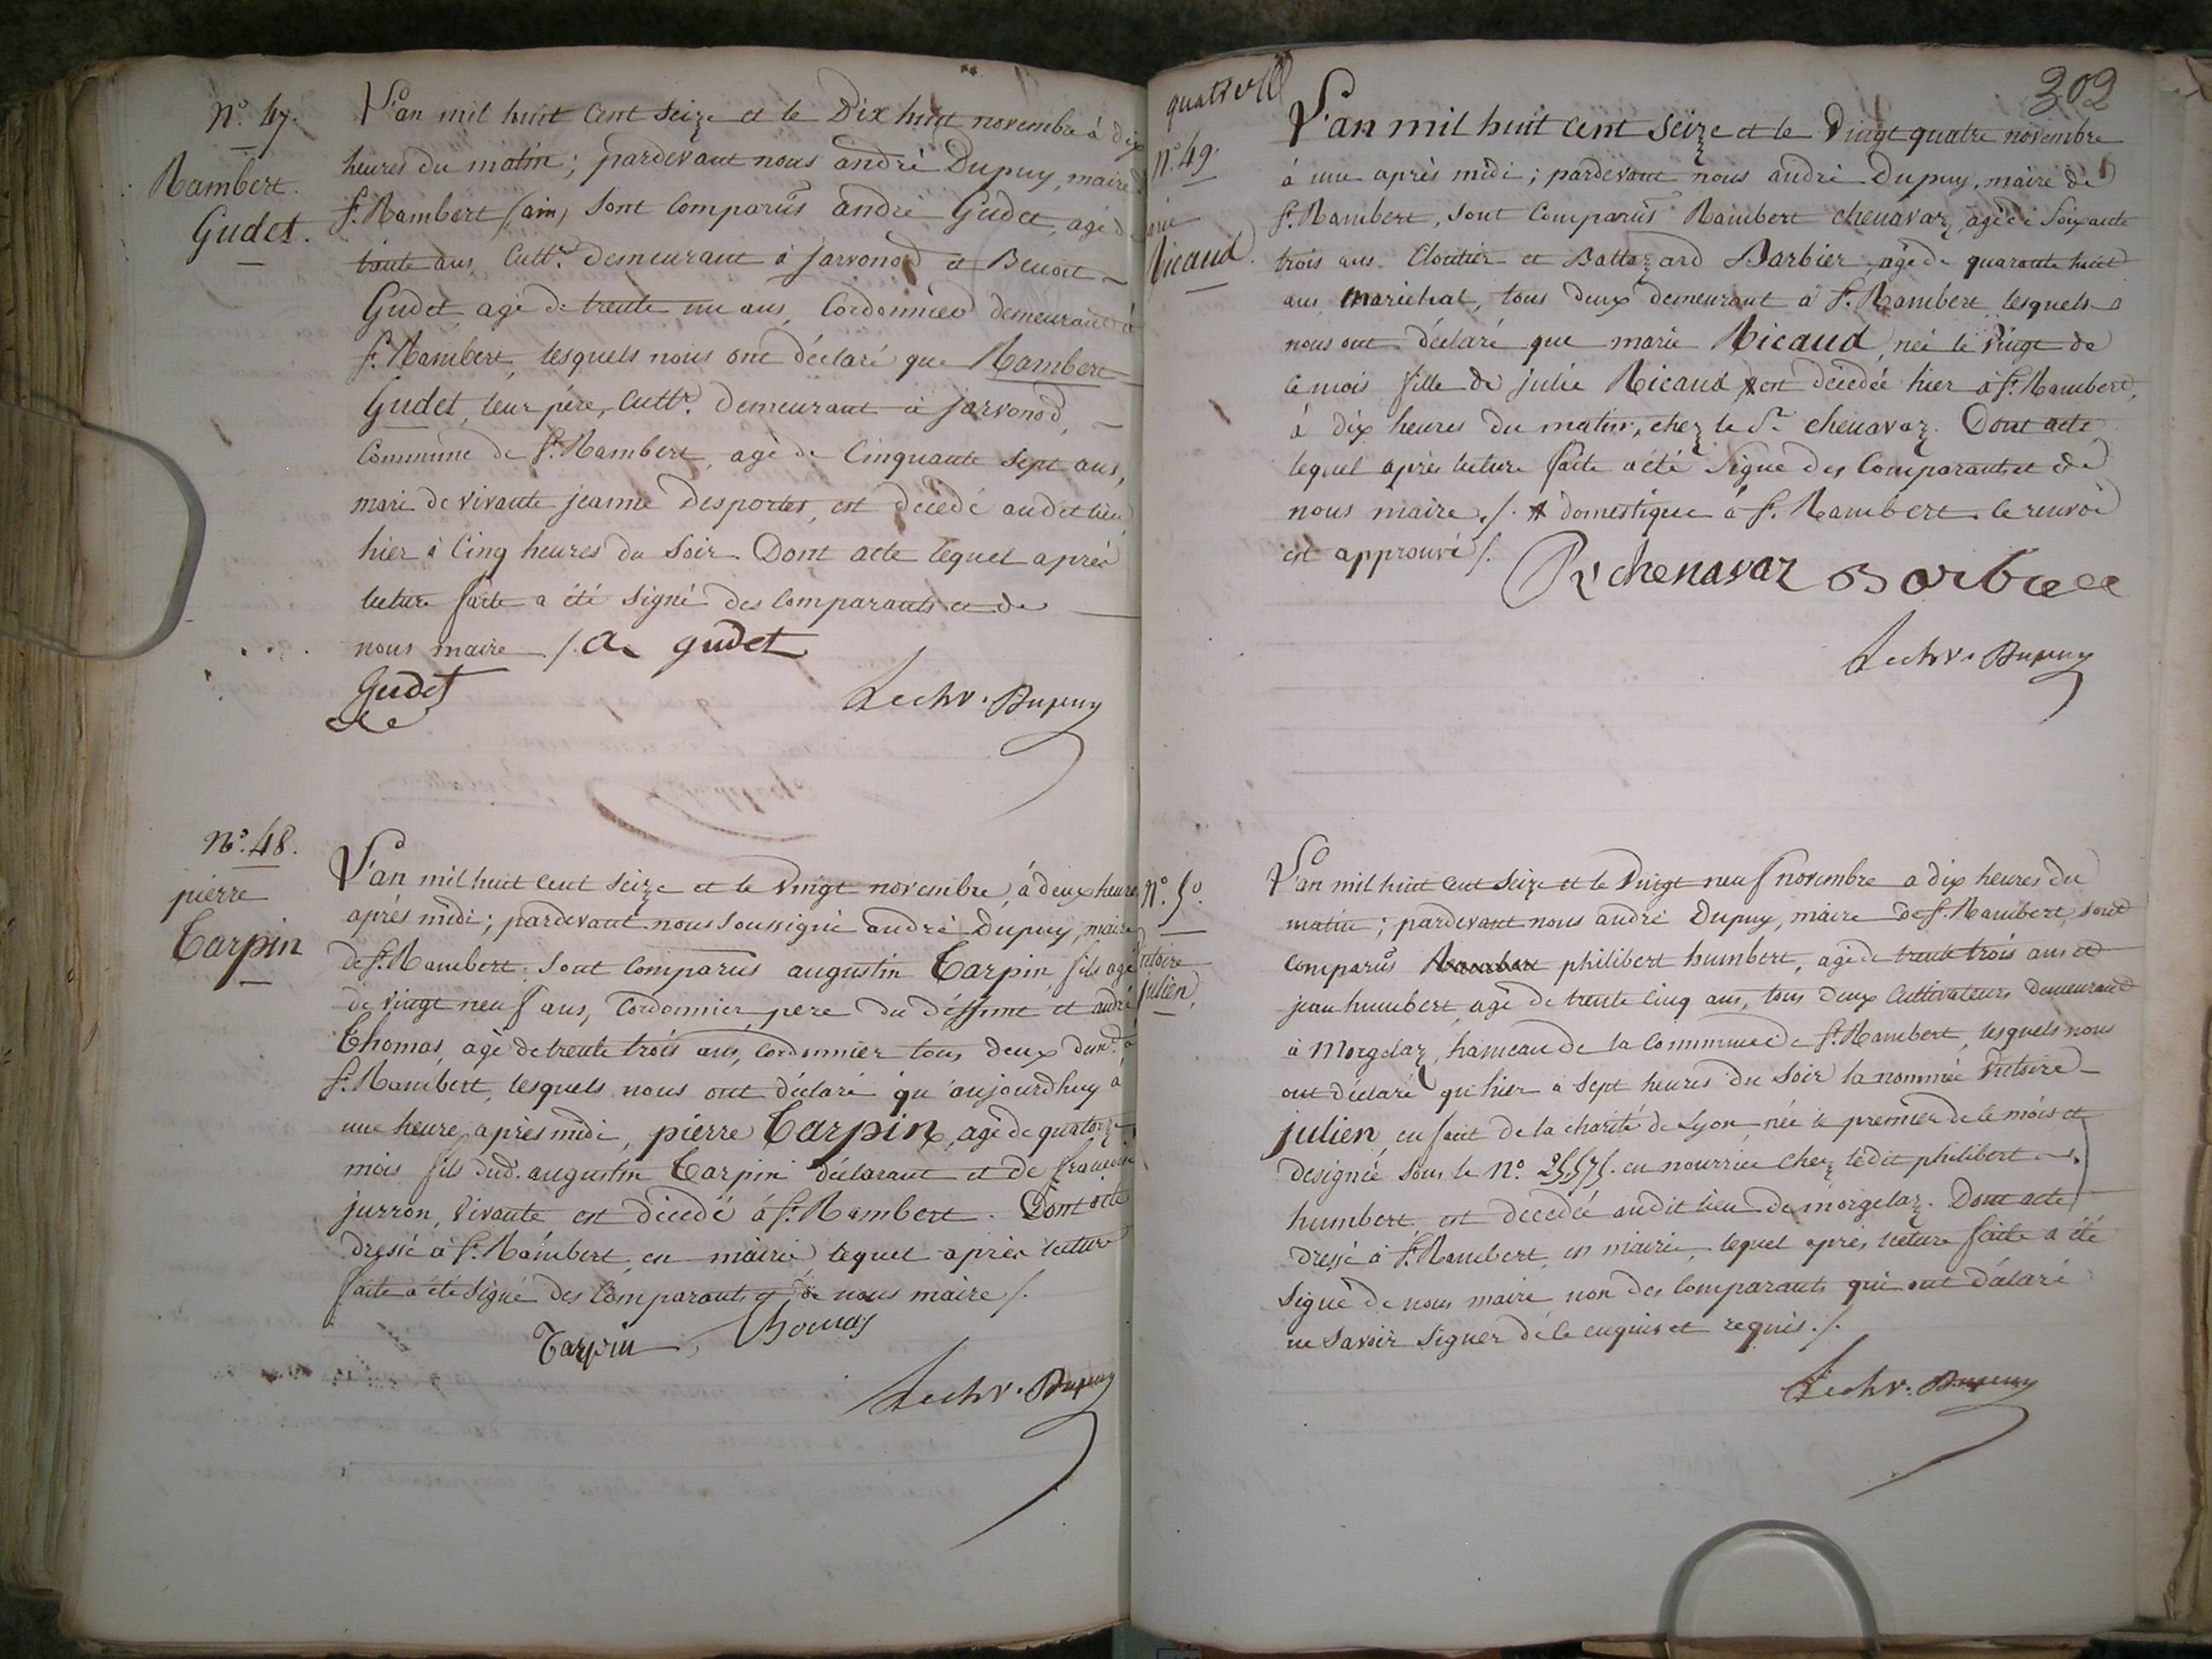 N.° 47.
Rambert.
Gudet.
L'an mil huit cent seize et le Dix huit novembre à dix
heures du matin; pardevant nous andré Dupuy, maire
St. Rambert (ain) sont comparûs andré Gudet, agé de
tante ans, Cultr. demeurant à jarvonod et Benoit
Gudet, agé de trente un ans, Cordonnier demeurant à
St. Rambert, lesquels nous ont déclaré que Rambert
Gudet, leur père, Cultr. demeurant à jarvonod,
Commune de St. Rambert, agé de Cinquante Sept ans,
mari de vivante jeanne Desportes, est décédé audit lieu
hier à Cinq heures du Soir. Dont acte lequel après
lecture faite a été signé des Comparants et de
nous maire ./. a. gudet
Gudet
Lechv. Dupuy
N.° 48.
pierre
Tarpin
L'an mil huit cent seize et le vingt novembre, à deux heures
après midi; pardevant nous soussigné andré Dupuy, maire
de St. Rambert. Sont comparus augustin Tarpin, fils agé
de vingt neuf ans, Cordonnier, pere du déffunt et andré
Thomas, agé de trente trois ans, cordonnier tous deux demt. à
St. Rambert, lesquels nous ont déclaré qu'aujourdhuy à
une heure après midi, pierre Tarpin, agé de quatorze
mois fils dud. augustin Tarpin déclarant et de françoise
jurron, vivante est décedé à St. Rambert. Dont acte
dressé à St. Rambert, en mairie, lequel après lecture
faite a été signé des Comparants et de nous maire ./.
Tarpin Thomas
Lechv. Dupuy
302
N.° 49.
Ricaud.
L'an mil huit cent seize et le vingt quatre novembre
à une après midi; pardevant nous andré Dupuy, maire de
St. Rambert, sont Comparûs Rambert chenavaz, agé de soixante
trois ans. Cloutier et Baltazard Barbier, agé de quarante huit
ans, maréchal, tous deux demeurant à St. Rambert, lesquels
nous ont déclaré que marie Ricaud, née le vingt de
ce mois fille de julie Ricaud, # est décedée hier à St. Rambert,
à dix heures du matin, chez le Sr. chenavaz. Dont acte
lequel après lecture faite a été signé des Comparants et de
nous maire ./. # domestique à St. Rambert. le renvoi
est approuvé ./.
R. chenavaz Barbier
Lechv. Dupuy
N.° 50.
julien,
L'an mil huit cent seize et le vingt neuf novembre a dix heures du
matin; pardevant nous andré Dupuy, maire de St. Rambert, sont
comparûs Rambert philibert humbert, agé de trente trois ans et
jean humbert, agé de trente cinq ans, tous deux Cultivateurs demeurant
à Morgelaz, hameau de la Commune de St. Rambert, lesquels nous
ont déclaré qu'hier à sept heures du Soir la nommée Victoire
julien, enfant de la charité de Lyon, née le premier de ce mois et
designée sous le N.° 25575. en nourrice chez ledit philibert
humbert, est decedée audit lieu de morgelaz. Dont acte
dressé à St. Rambert, en mairie, lequel après lecture faite a été
signé de nous maire, non des comparants qui ont déclaré
ne savoir signer de ce enquis et requis ./.
Lechv. Dupuy